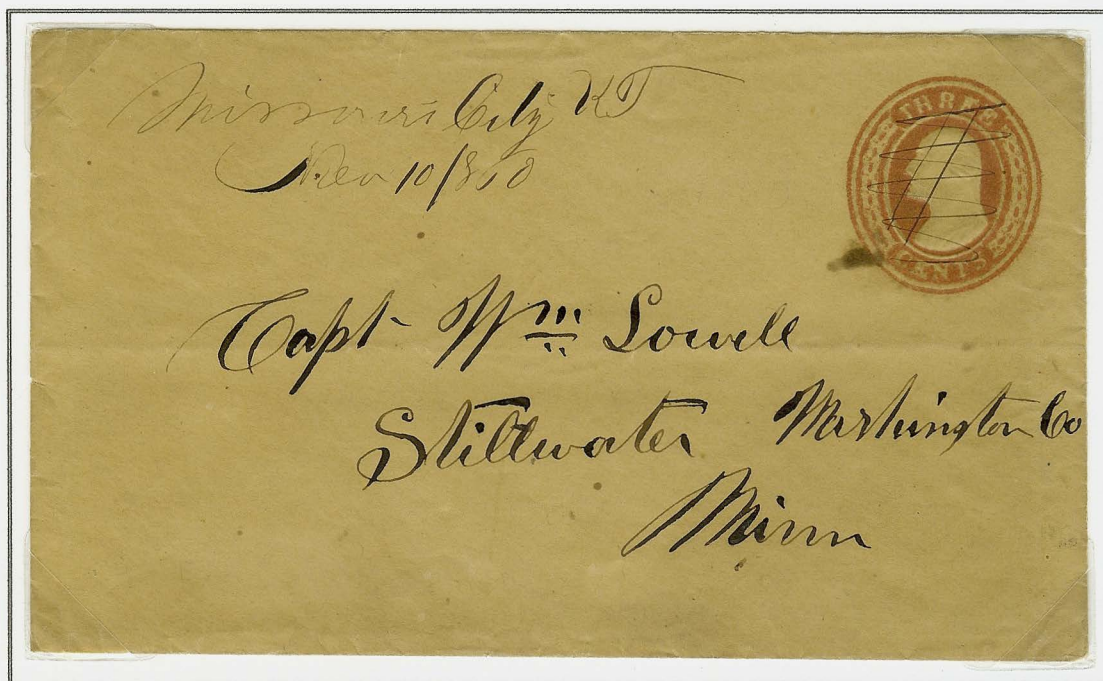 Missouri City KT
Nov 10/860
THREE
CENTS
Capt. Wm Lowell
Stillwater Washington Co
Minn